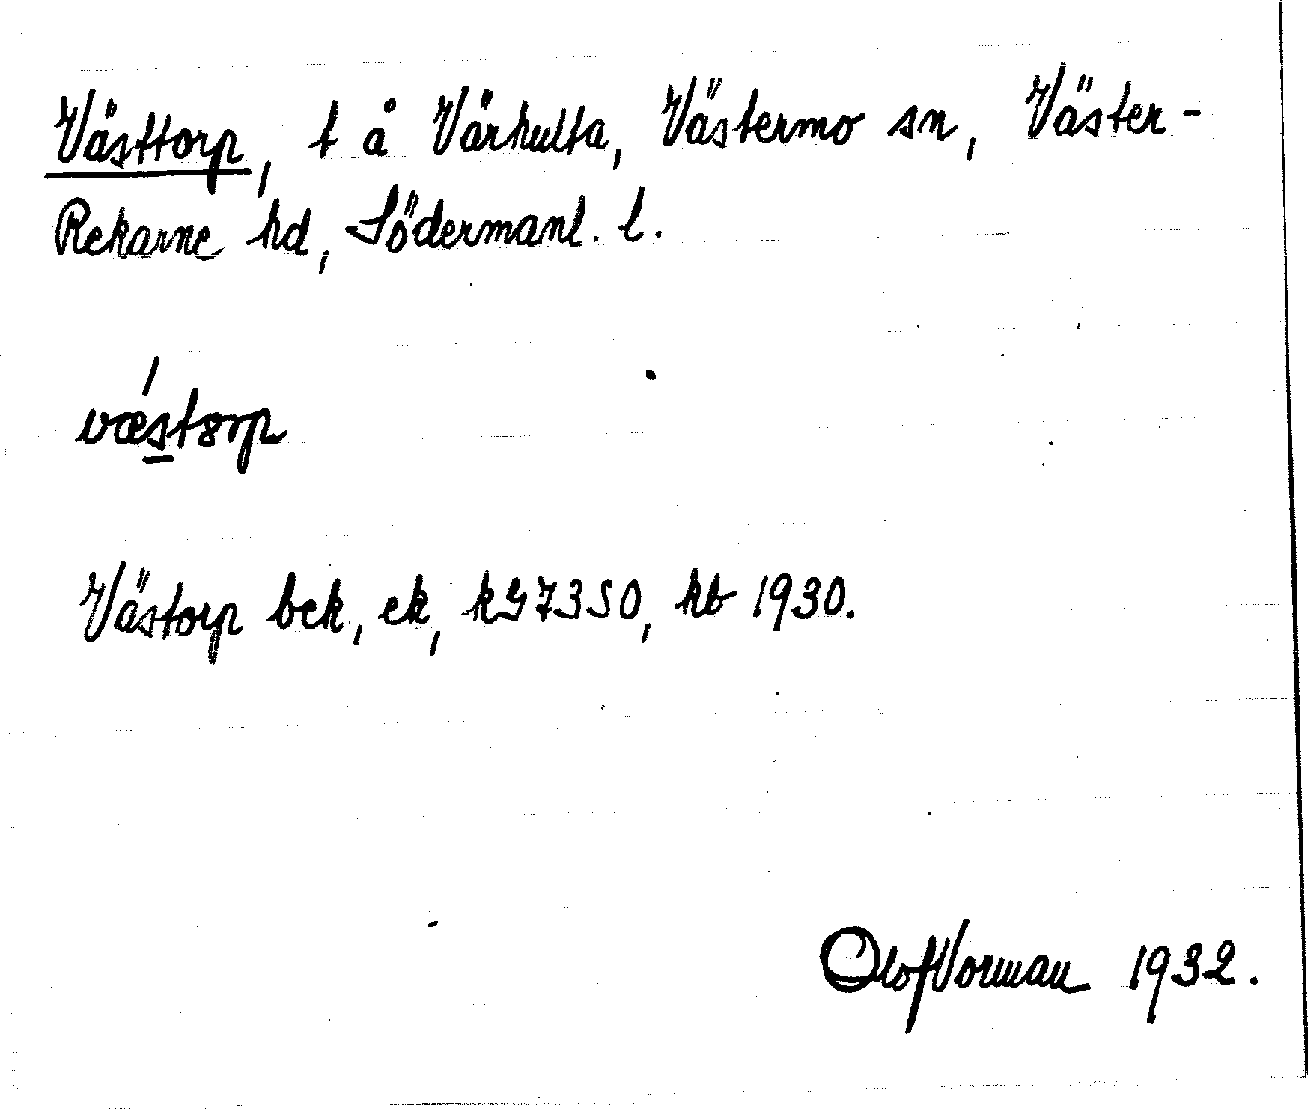 Västtorp, t å Vårhulta, Västermo sn, Väster-
Rekarne hd, Södermanl. l.
vǽstorp
Västorp bek, ek, kG7350, kb 1930.
Olof Vorman 1932.